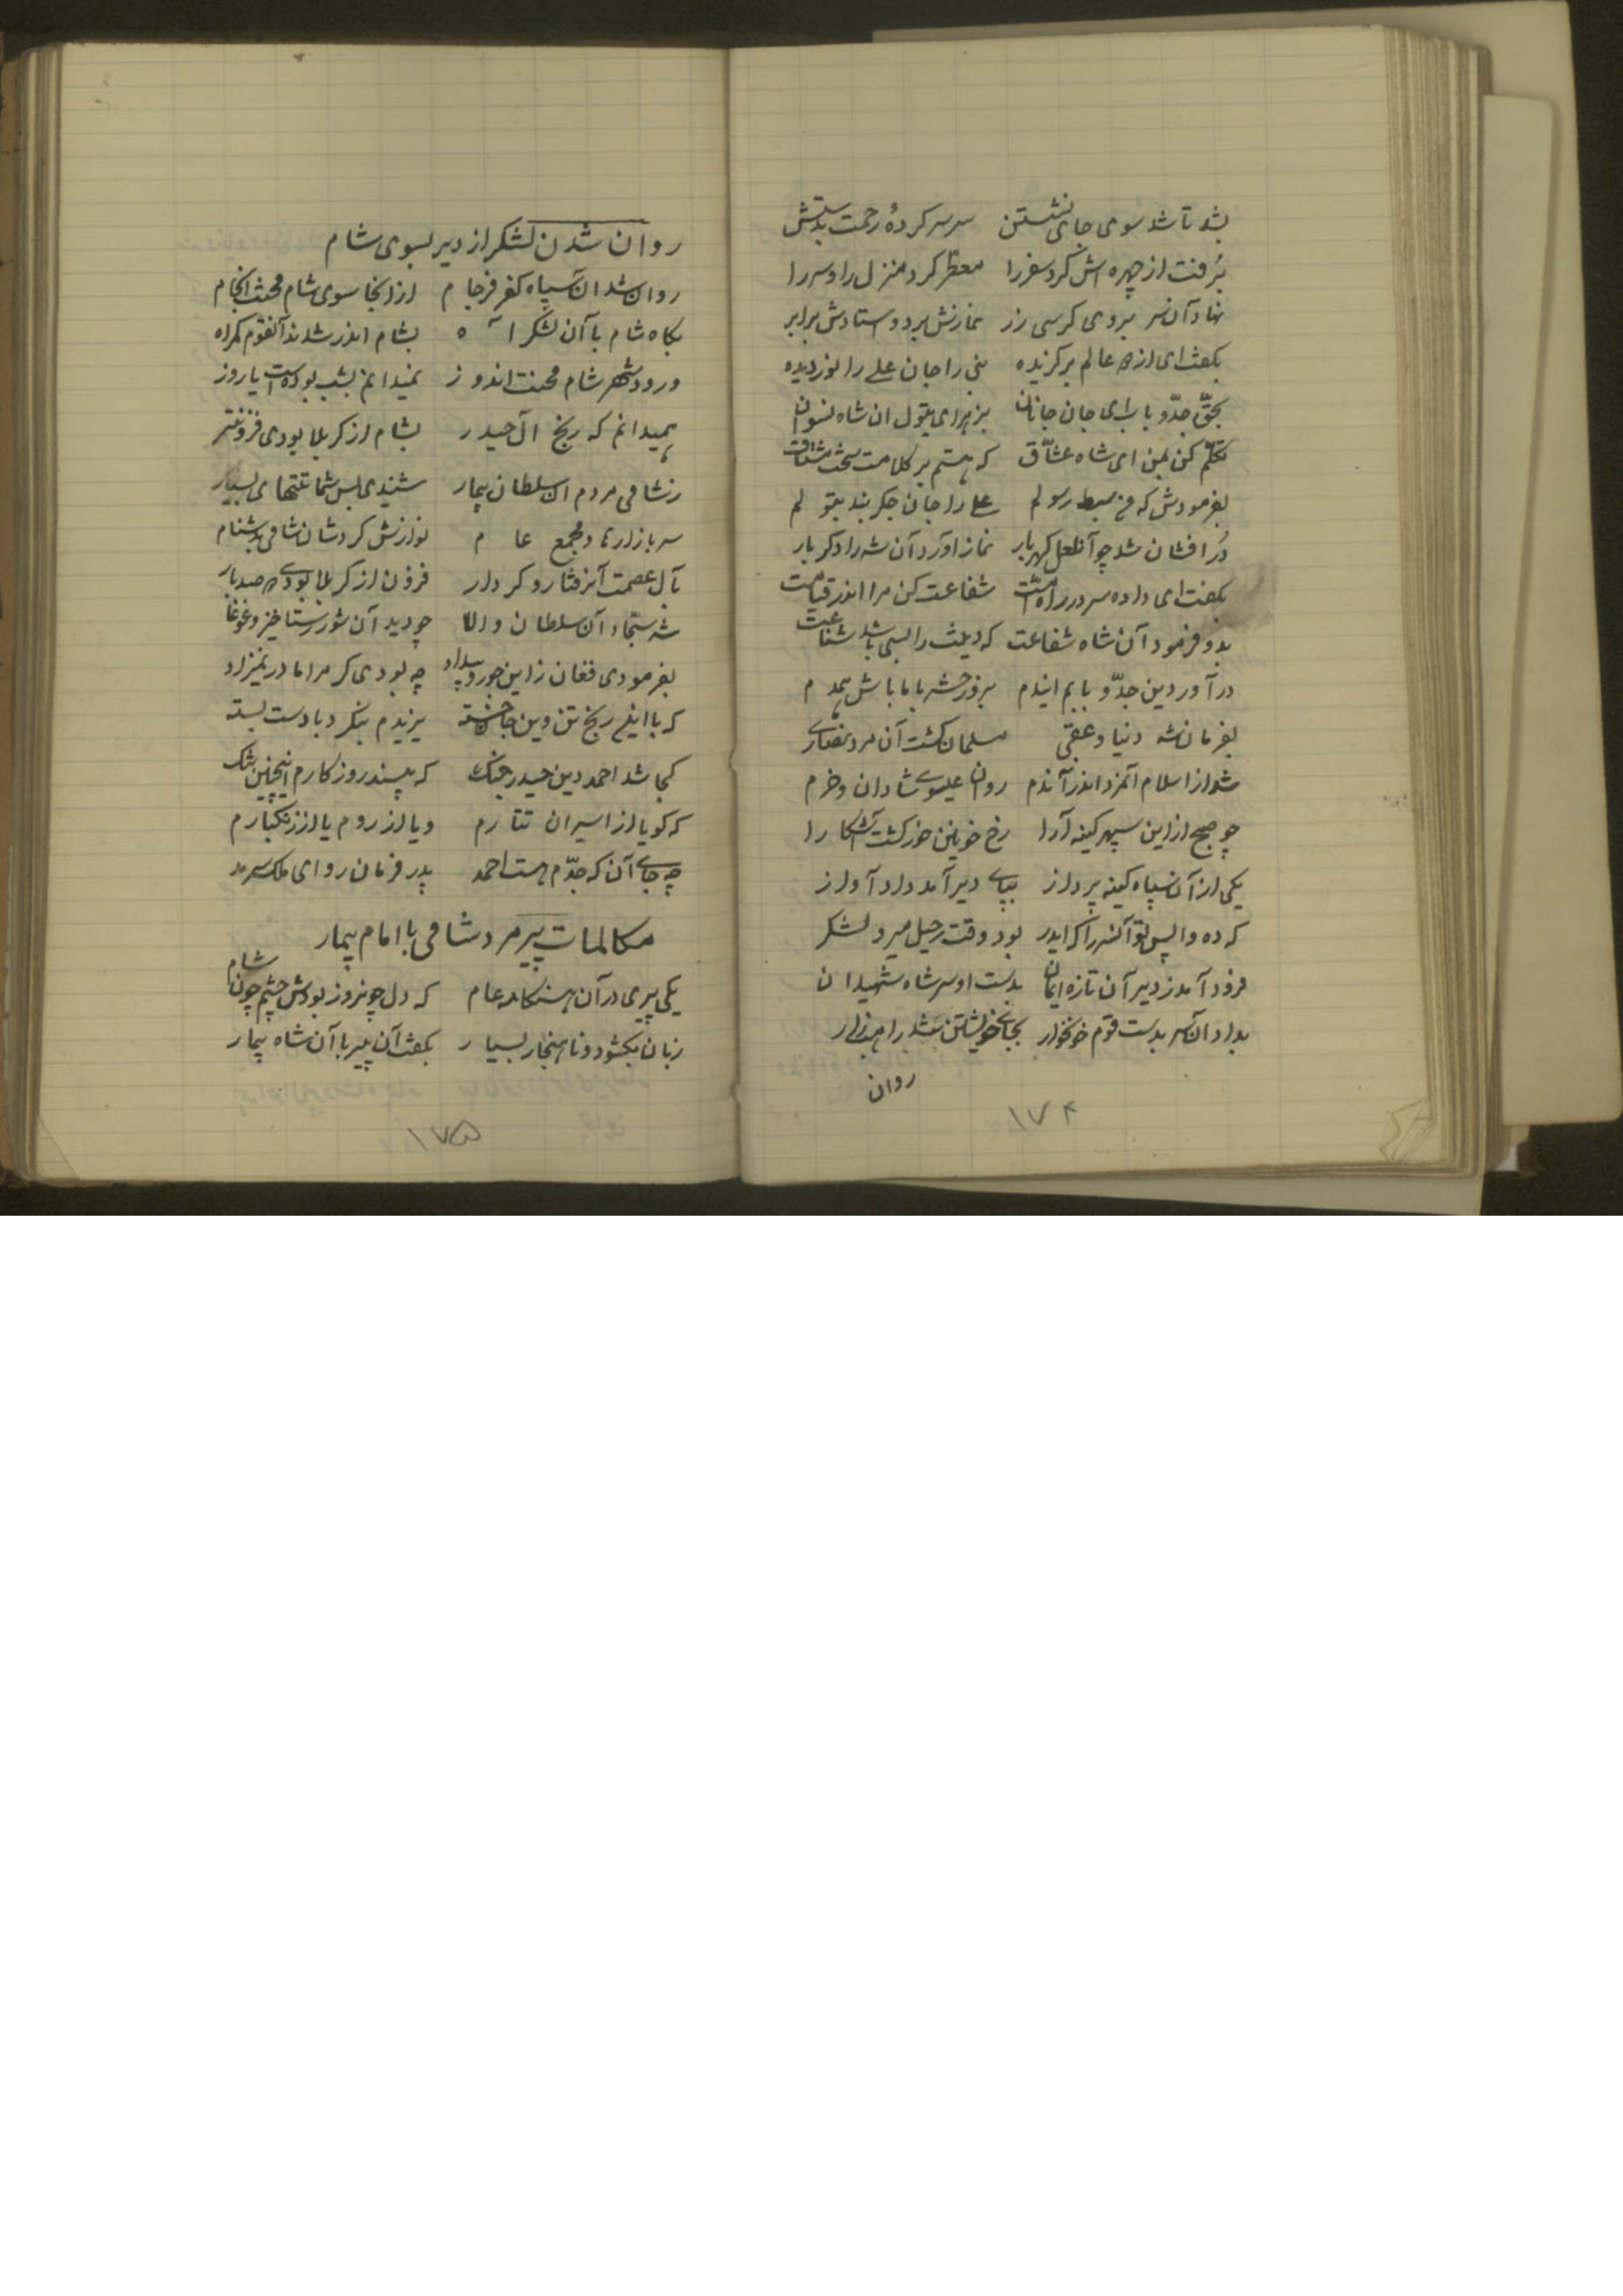 بشد تا شد سوی جای نشستن سر سر کردهٔ رحمت بدستش
برفت از چهره اش کرد سفر را معطّر کرد منزل را و سر را
نهاد آن سر بروی کرسی زر نمازش برد و استادش برابر
بکفت ای از همه عالم برکزیده نبی را جان علی را نور دیده
بحقّ جدّ و بابت ای جان جانان بزهرای بتول ان شاه نسوان
تکلّم کن بمن ای شاه عشّاق که هستم بر کلامت سخت مشتاق
بفرمودش که من سبط رسولم علی را جان جکر بند بتولم
دُر افشان شد چو آنلعل کهربار نماز آورد آن شه را دکر بار
بکفت ای داده سر در راه امّت شفاعت کن مرا اندر قیامت
بدو فرمود آن شاه شفاعت که دینت را نسبی باشد شفاعت
درآ در دین جدّ و بابم ایندم بروز حشر با ما باش همدم
بفرمان شه دنیا و عقبی مسلمان کشت آن مرد نصاری
شد از اسلام آنمرد اندر آندم روان عیسوی شادان و خرم
چو صبح از این سپهر کینه آرا رخ خونین خور کشت آشکارا
یکی از آن سپاه کینه پرداز بپای دیر آمد داد آواز
که ده واپس تو آنسر را کز ایدر بود وقت رحیل میر و لشکر
فرود آمد ز دیر آن تازه ایمان بدست او سر شاه شهیدان
بداد آن سر بدست قوم خونخوار بجای خویشتن بنشد راهب زار
روان
۱۷۴
روان شدن لشکر از دیر بسوی شام
روان شد ان سپاه کفر فرجام از انجا سوی شام محنت انجام
بکاه شام با آن لشکر اه بشام اندر شدند آنقوم کمراه
ورود شهر شام محنت اندوز نمیدانم بشب بوده است یا روز
همیدانم که رنج ال حیدر بشام از کربلا بودی فزونتر
ز شامی مردم ان سلطان بیمار شنیدی بس شماتتهای بسیار
سر بازارها و مجمع عام نوازش کردشان شامی بدشنام
بآل عصمت آنرفتار و کردار فزون از کربلا بودی صد بار
شه سجّاد آن سلطان والا چو دید آن شور رستاخیز و غوغا
بفرمودی فغان زاین جور و بیداد چه بودی کر مرا مادر نمیزاد
که با این رنج تن وین جان خسته یزیدم ننکرد با دست بسته
کجا شد احمد دین حیدر جنک که پسندد روزکارم اینچنین تنک
که کویا از اسیران تتارم و یا از روم یا از زنکبارم
چه جای آن که جدّم هست احمد پدر فرمان روای ملک سرمد
مکالمات پیر مرد شامی با امام بیمار
یکی پیری در آن هنکامه عام که دل چونروز بودش چشم چون شام
زبان بکشود و ناهنجار بسیار بکفت آن پیر با آن شاه بیمار
۱۷۵